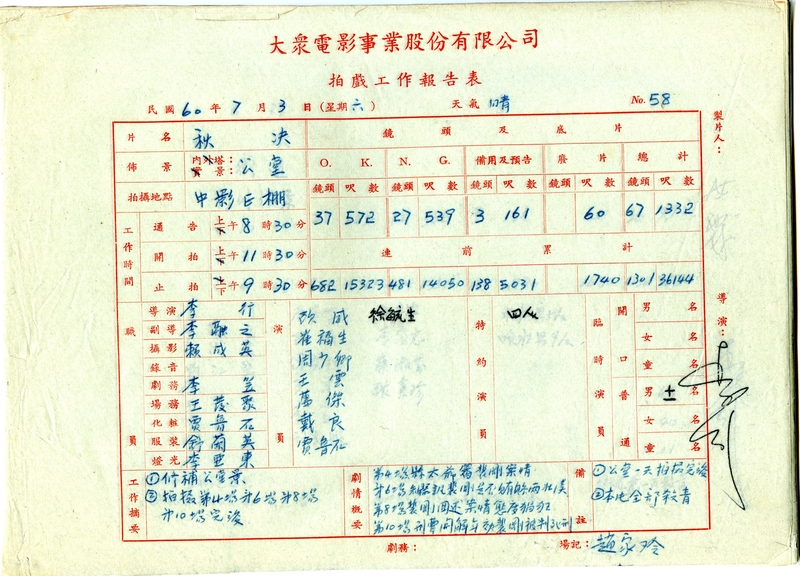 大眾電影事業股份有限公司
拍戲工作報告表
民國 60 年 7 月 3 日 (星期六) 天氣 晴 No. 58
製片人：
片名 秋決 鏡頭及底片
佈景 內搭： 實景： 公堂 O. K. N. G. 備用及預告 廢片 總計
拍攝地點 中影E棚 鏡頭 呎數 鏡頭 呎數 鏡頭 呎數 鏡頭 呎數 鏡頭 呎數
工作時間 通告 上下午 8 時 30 分 37 572 27 539 3 161 60 67 1332
開拍 上下午 11 時 30 分 連前累計
止拍 上下午 9 時 30 分 682 15323 481 14050 138 5031 1740 1301 36144
職員 演員 特約演員 臨時演員 開口 普通 導演：
導演 李行 歐威 徐毓生 四人 男 名
副導 李融之 崔福生 女 名
攝影 賴成英 周少卿 童 名
錄音 王雲 男 十 名
劇務 李笠 葛傑 女 名
場務 王茂聚 戴良 童 名
化粧 賈魯石 賈魯石
服裝 舒蘭英
燈光 李亞東
工作摘要 ①修補公堂景
②拍攝第4場第6場第8場
第10場完後
劇情概要 第4場
第6場
第8場裴剛
第10場
備註 ①公堂一天拍攝完後
②本日全部較青
劇務： 場記： 趙家玲